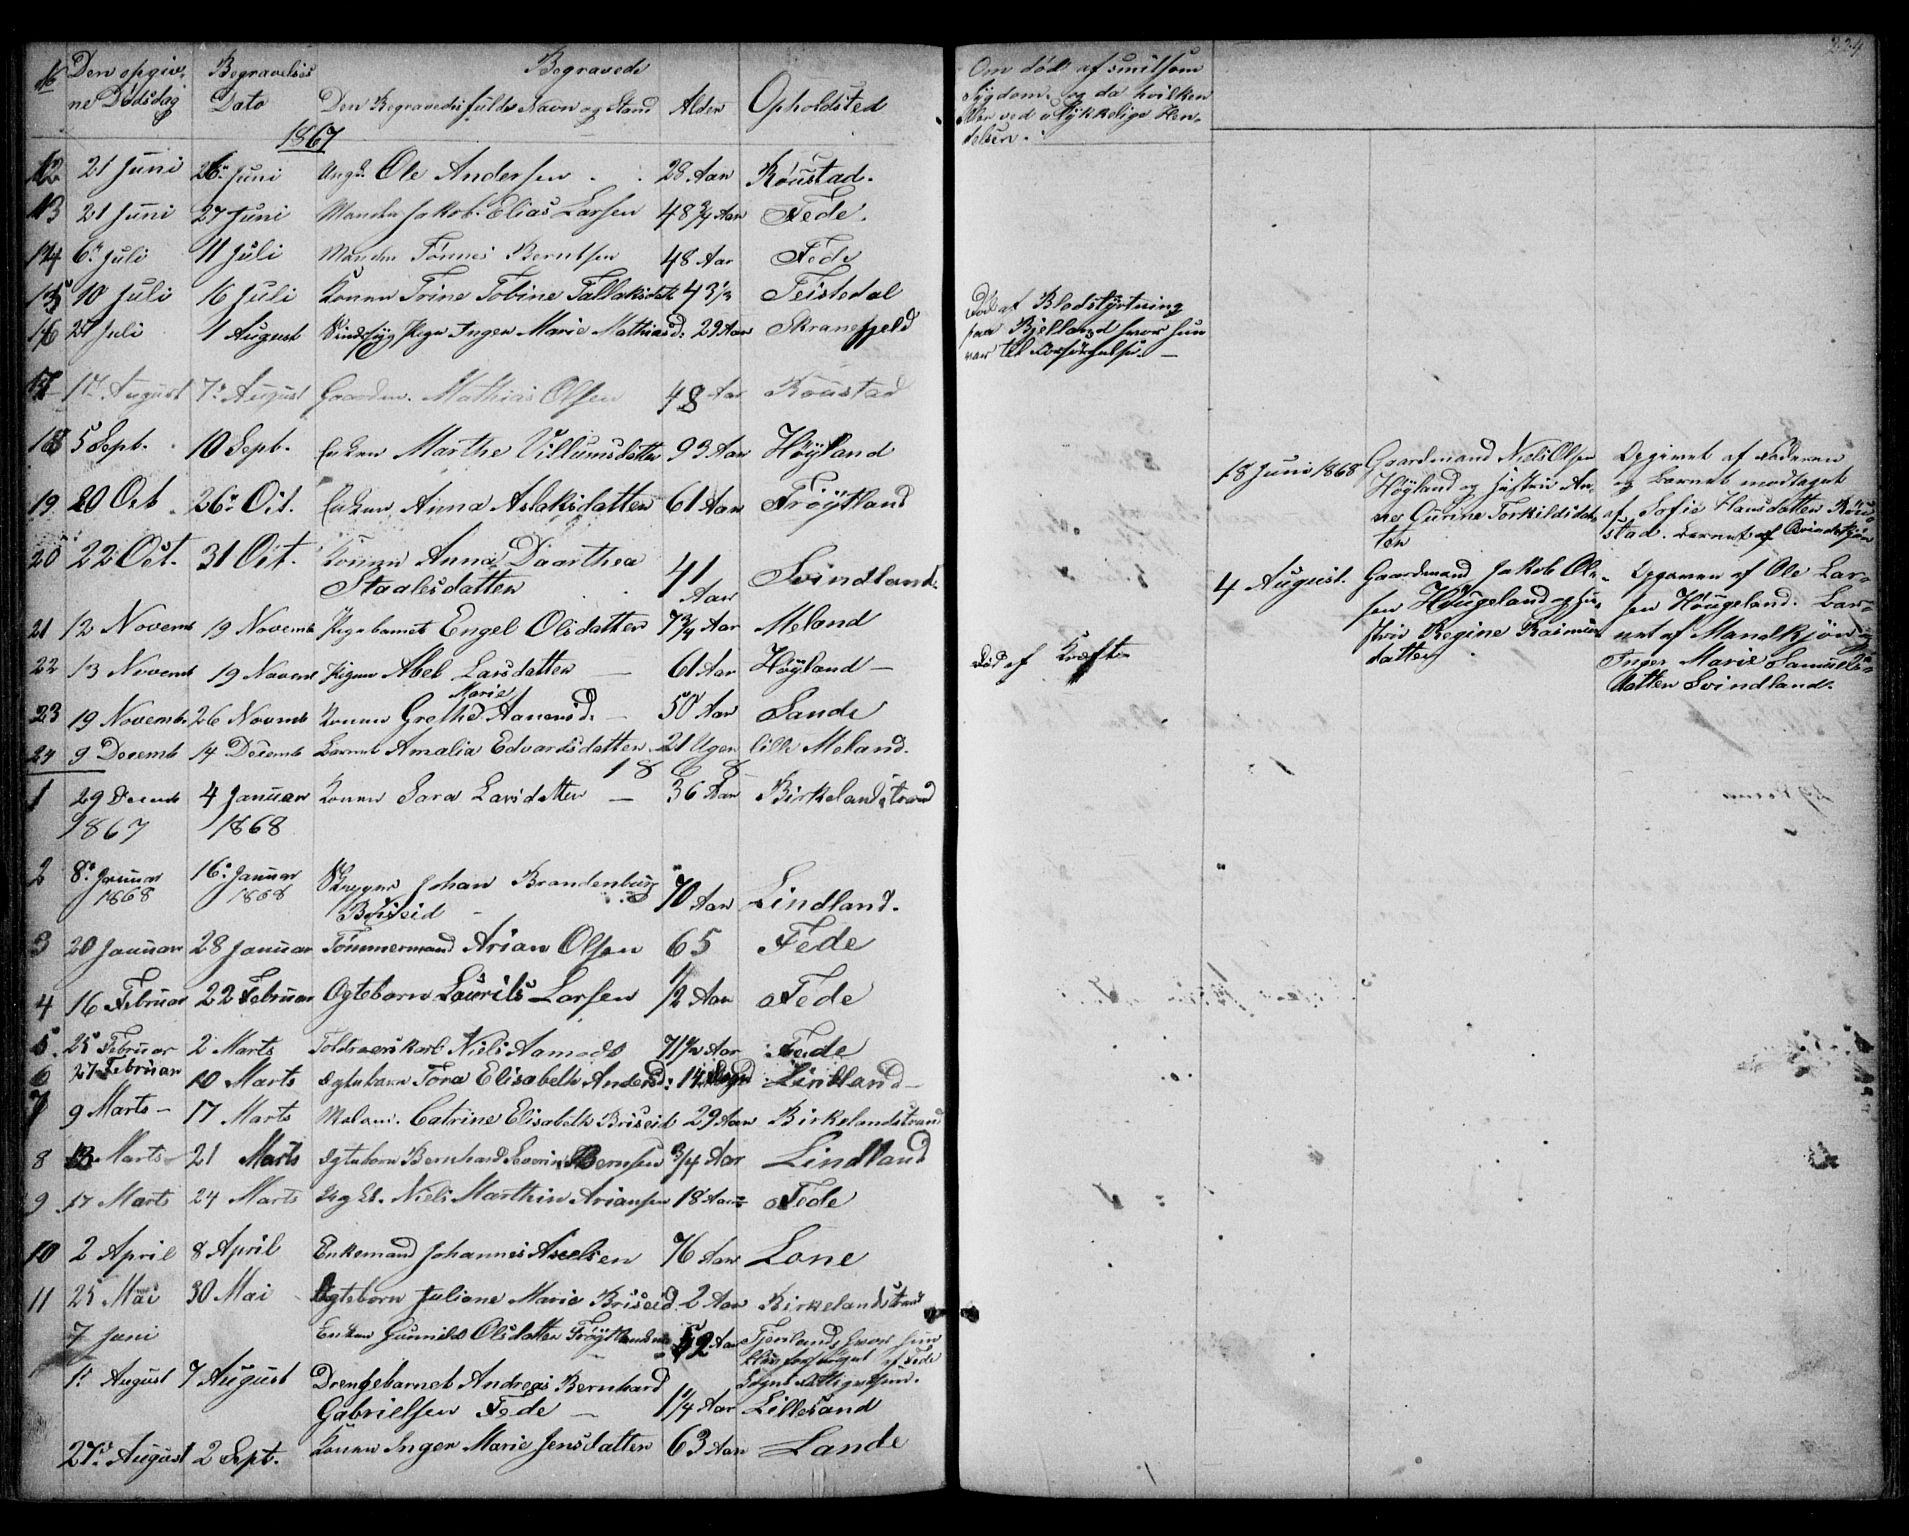 № Den opgiv- Begravelses Begravede
ne Dødsdag Dato Den Begravedes fulde Navn og Stand Alder Opholdsted
1867
12 21 Juni 26. Juni Ungk. Ole Andersen 28 Aar Röustad.
13 21 Juni 27 Juni Manden Jakob Elias Larsen 48 3/4 Aar Fede.
14 6. Juli 11 Juli Manden Tönnes Berntsen 48 Aar Fede
15 10 Juli 16 Juli Konen Trine Tobine Tallaksdatt 43 1/2 Feistedal
16 27 Juli 1 August Sindssyg Pige Inger Marie Mathiasd: 29 Aar Skranefjeld
17 1. August 7. August Gaardm. Mathias Olsen 48 Aar Röustad
18 5 Sept. 10 Sept. Enken Marthe Villumsdatter 93 Aar Höyland
19 20 Oct 26. Oct. Enken Anna Aslaksdatter 61 Aar Fröytland
20 22 Oct. 31 Oct. Konen Anna Daarthea
Staalesdatter 41 Aar Svindland.
21 12 Novemb 19 Novemb Pigebarnet Engel Olsdatter 7 3/4 Aar Meland
22 13 Novemb 19 Novemb Pigen Abel Larsdatter — 61 Aar Höyland —
23 19 Novemb 26 Novemb Konen Grethe Marie Aanensd. — 50 Aar Sande
24 9 Decemb 14 Decemb Barnet Amalia Edvardsdatter 21 Uger lille Meland.
1868
1 29 Decemb 4 Januar Konen Sara Larsdatter — 36 Aar Birkelandstrand
1867 1868
2 8. Januar 16. Januar Skipper Johan Brandenburg
1868 1868 Briseid 70 Aar Lindland.
3 20 Januar 28 Januar Tömmermand Arian Olsen 65 Fede
4 16 Februar 22 Februar Ogtebarn Laurits Larsen 1/2 Aar Fede
5. 25 Februar 2 Marts Toldroerskarl Niels Aamodt 71 1/2 Aar Fede
6 27 Februar 10 Marts Ogtebarn Tora Elisabeth Andersd: 14 Lindland —
7 9 Marts — 17 Marts Madam. Catrine Elisabeth Briseid 29 Aar Birkelandstrand
8 13 Marts 21 Marts Ogtebarn Bernhard Severin Bernsen 3/4 Aar Lindland
9. 17 Marts 24 Marts Niels Marthin Ariansen 18 Aar Fede
10 2 April 8 April Enkemand Johannes Axelsen 76 Aar Lone
11 25 Mai 30 Mai Ogtebarn Juliane Marie Briseid. 2 Aar Birkelandstrand
7 Juni Enken Gunnild Olsdatter 52 Aar Fjenland, hvor hun
af Fede
Sogns Fattigvæsen.
1. August 7 August Drengebarnet Andreas Bernhard
Gabrielsen Fede — 1 1/4 Aar Lillesand
27. August 2 Sept. Konen Inger Marie Jensdatter 63 Aar Lande
224
Om död af smitsom
Sygdom, og da hvilken
eller ved ulykkelige Hen-
delser.
Död af Blodstyrtning
paa Bjelland hvor hun
var til Forsörgelse. —
Död af Kræft
18 Juni 1868 Gaardmand Niels Olsen
Höyland og Hustru An-
ne Gurine Torkildsdat-
ter
Opgivet af Faderen
og Barnet modtaget
af Sofie Hansdatter Röu-
stad. Barnet af Qvindekjön
4 August. Gaardmand Jakob Ol-
sen Hougeland og Hu-
stru Regine Rasmus-
datter
Opgiven af Ole Lar-
sen Hougeland. Bar-
net af Mandkjön og
Inger Marie Samuels-
datter Svindland.